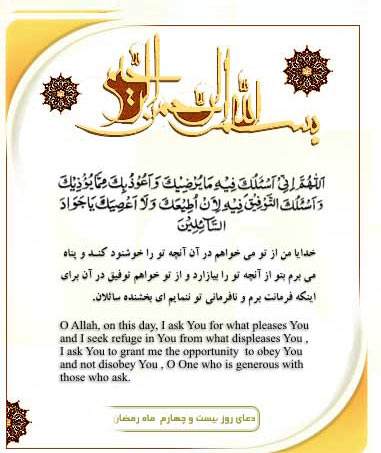 بسم الله الرحمن الرحیم
اَللّٰهُمَّ اِنّی اَسْئَلُكَ فیهِ مَا یُرْضیكَ وَ اَعُوذُ بِكَ مِمَّا یُؤْذیكَ
وَ اَسْئَلُكَ التَّوْفیقَ فیهِ لِاَنْ اُطیعَكَ وَ لَا اَعْصِیَكَ یَا جَوَادَ
السَّآئِلینَ
خدایا من از تو می خواهم در آن آنچه تو را خوشنود کند و پناه
می برم بتو از آنچه تو را بیازارد و از تو خواهم توفیق در آن برای
اینکه فرمانت برم و نافرمانی تو ننمایم ای بخشنده سائلان.
O Allah, on this day, I ask You for what pleases You
and I seek refuge in You from what displeases You ,
I ask You to grant me the opportunity to obey You
and not disobey You , O One who is generous with
those who ask.
دعای روز بیست و چهارم ماه رمضان